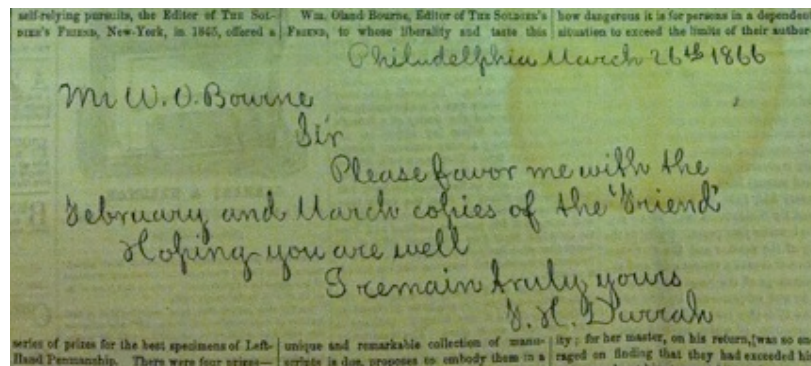 self-relying pursuits, the Editor of THE SOL-
DIER'S FRIEND, New-York, in 1865, offered a
Wm. Oland Bourne, Editor of THE SOLDIER'S
FRIEND, to whose liberality and taste this
how dangerous it is for persons in a dependen
situation to exceed the limits of their author-
Philadelphia March 26th 1866
Mr W. O. Bourne
Sir
Please favor me with the
February and March copies of the "Friend"
Hoping you are well
I remain truly yours
F. H. Durrah
series of prizes for the best specimens of Left-
Hand Penmanship. There were four prizes—
unique and remarkable collection of manu-
scripts is due, proposes to embody them in a
ity; for her master, on his return, [was so en
raged on finding that they had exceeded his